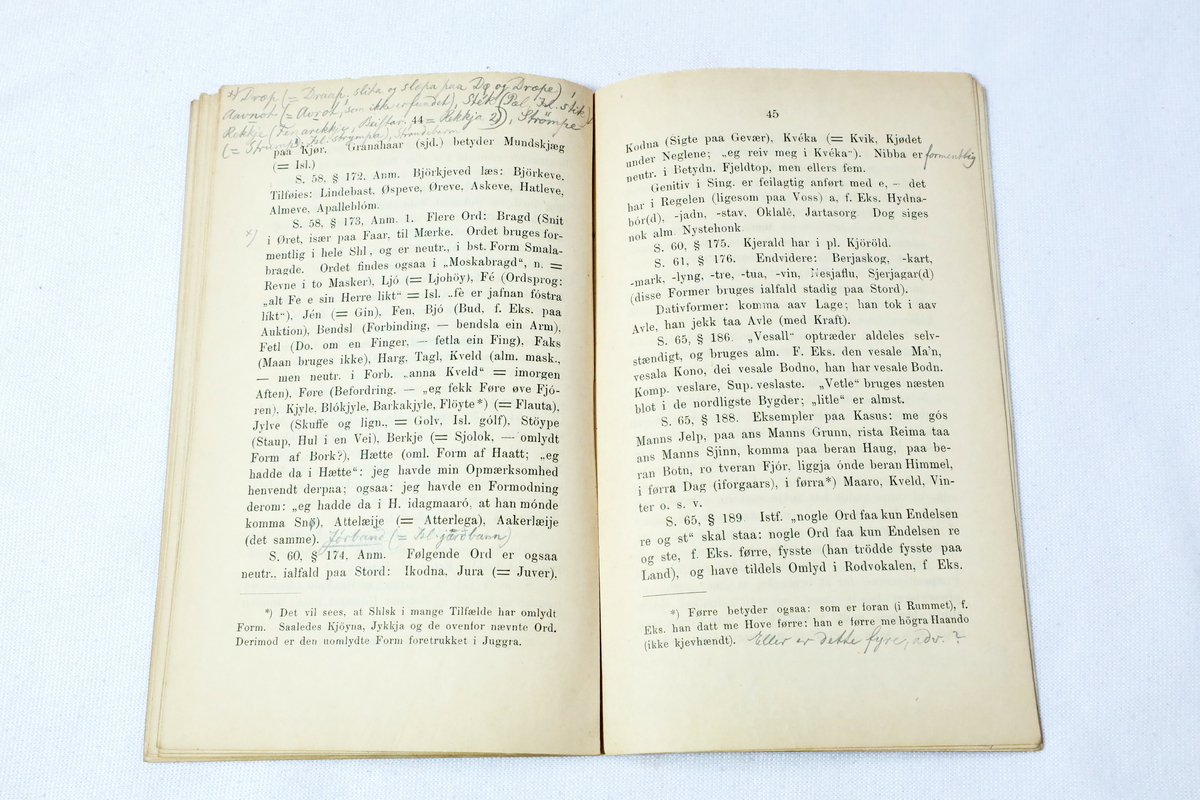 *) Dræp (= Draap, slita og slepa paa Dø og Dræpe),
Aavnot (= Avrot, som ikke er fundet), Stek (Pal, Isl. stik)
Rekkje 44 = Rekkja 2), Strömpe
(= Strump, Isl. strympa), Strandebarm
paa Kjør. Granahaar (sjd.) betyder Mundskjæg
(= Isl.)
S. 58, § 172, Anm. Björkjeved læs: Björkeve.
Tilføies: Lindebast, Øspeve, Øreve, Askeve, Hatleve,
Almeve, Apalleblóm.
S. 58, § 173, Anm. 1. Flere Ord: Bragd (Snit
×) i Øret, især paa Faar, til Mærke. Ordet bruges for-
mentlig i hele Shl, og er neutr., i bst. Form Smala-
bragde. Ordet findes ogsaa i „Moskabragd“, n. =
Revne i to Masker), Ljó (= Ljohöy), Fé (Ordsprog:
„alt Fe e sin Herre likt“ = Isl. „fè er jafnan fóstra
líkt“), Jén (= Gin), Fen, Bjó (Bud, f. Eks. paa
Auktion), Bendsl (Forbinding, — bendsla ein Arm),
Fetl (Do. om en Finger, — fetla ein Fing), Faks
(Maan bruges ikke), Harg, Tagl, Kveld (alm. mask.,
— men neutr. i Forb. „anna Kveld“ = imorgen
Aften), Føre (Befordring, — „eg fekk Føre øve Fjó-
ren), Kjyle, Blókjyle, Barkakjyle, Flöyte*) (= Flauta),
Jylve (Skuffe og lign., = Golv, Isl. gólf), Stöype
(Staup, Hul i en Vei), Berkje (= Sjolok, — omlydt
Form af Bork?), Hætte (oml. Form af Haatt; „eg
hadde da i Hætte“: jeg havde min Opmærksomhed
henvendt derpaa; ogsaa: jeg havde en Formodning
derom: „eg hadde da i H. idagmaaró, at han mónde
komma Snø), Attelæije (= Atterlega), Aakerlæije
(det samme). Jórband (= Isl. jarðbann)
S. 60, § 174, Anm. Følgende Ord er ogsaa
neutr., ialfald paa Stord: Ikodna, Jura (= Juver),
*) Det vil sees, at Shlsk i mange Tilfælde har omlydt
Form. Saaledes Kjöyna, Jykkja og de ovenfor nævnte Ord.
Derimod er den uomlydte Form foretrukket i Juggra.
45
Kodna (Sigte paa Gevær), Kvéka (= Kvik, Kjødet
under Neglene; „eg reiv meg i Kvéka“). Nibba er formentlig
neutr. i Betydn. Fjeldtop, men ellers fem.
Genitiv i Sing. er feilagtig anført med e, — det
har i Regelen (ligesom paa Voss) a, f. Eks. Hydna-
bór(d), -jadn, -stav, Oklalê, Jartasorg. Dog siges
nok alm. Nystehonk.
S. 60, § 175. Kjerald har i pl. Kjöröld.
S. 61, § 176. Endvidere: Berjaskog, -kart,
-mark, -lyng, -tre, -tua, -vin, Nesjaflu, Sjerjagar(d)
(disse Former bruges ialfald stadig paa Stord).
Dativformer: komma aav Lage; han tok i aav
Avle, han jekk taa Avle (med Kraft).
S. 65, § 186. „Vesall“ optræder aldeles selv-
stændigt, og bruges alm. F. Eks. den vesale Ma'n,
vesala Kono, dei vesale Bodno, han har vesale Bodn.
Komp. veslare, Sup. veslaste. „Vetle“ bruges næsten
blot i de nordligste Bygder; „litle“ er almst.
S. 65, § 188. Eksempler paa Kasus: me gós
Manns Jelp, paa ans Manns Grunn, rista Reima taa
ans Manns Sjinn, komma paa beran Haug, paa be-
ran Botn, ro tveran Fjór, liggja ónde beran Himmel,
i førra Dag (iforgaars), i førra*) Maaro, Kveld, Vin-
ter o. s. v.
S. 65, § 189. Istf. „nogle Ord faa kun Endelsen
re og st“ skal staa: nogle Ord faa kun Endelsen re
og ste, f. Eks. førre, fysste (han trödde fysste paa
Land), og have tildels Omlyd i Rodvokalen, f Eks.
*) Førre betyder ogsaa: som er foran (i Rummet), f.
Eks. han datt me Hove førre: han e førre me högra Haando
(ikke kjevhændt). Eller er dette fyre, adv. ?